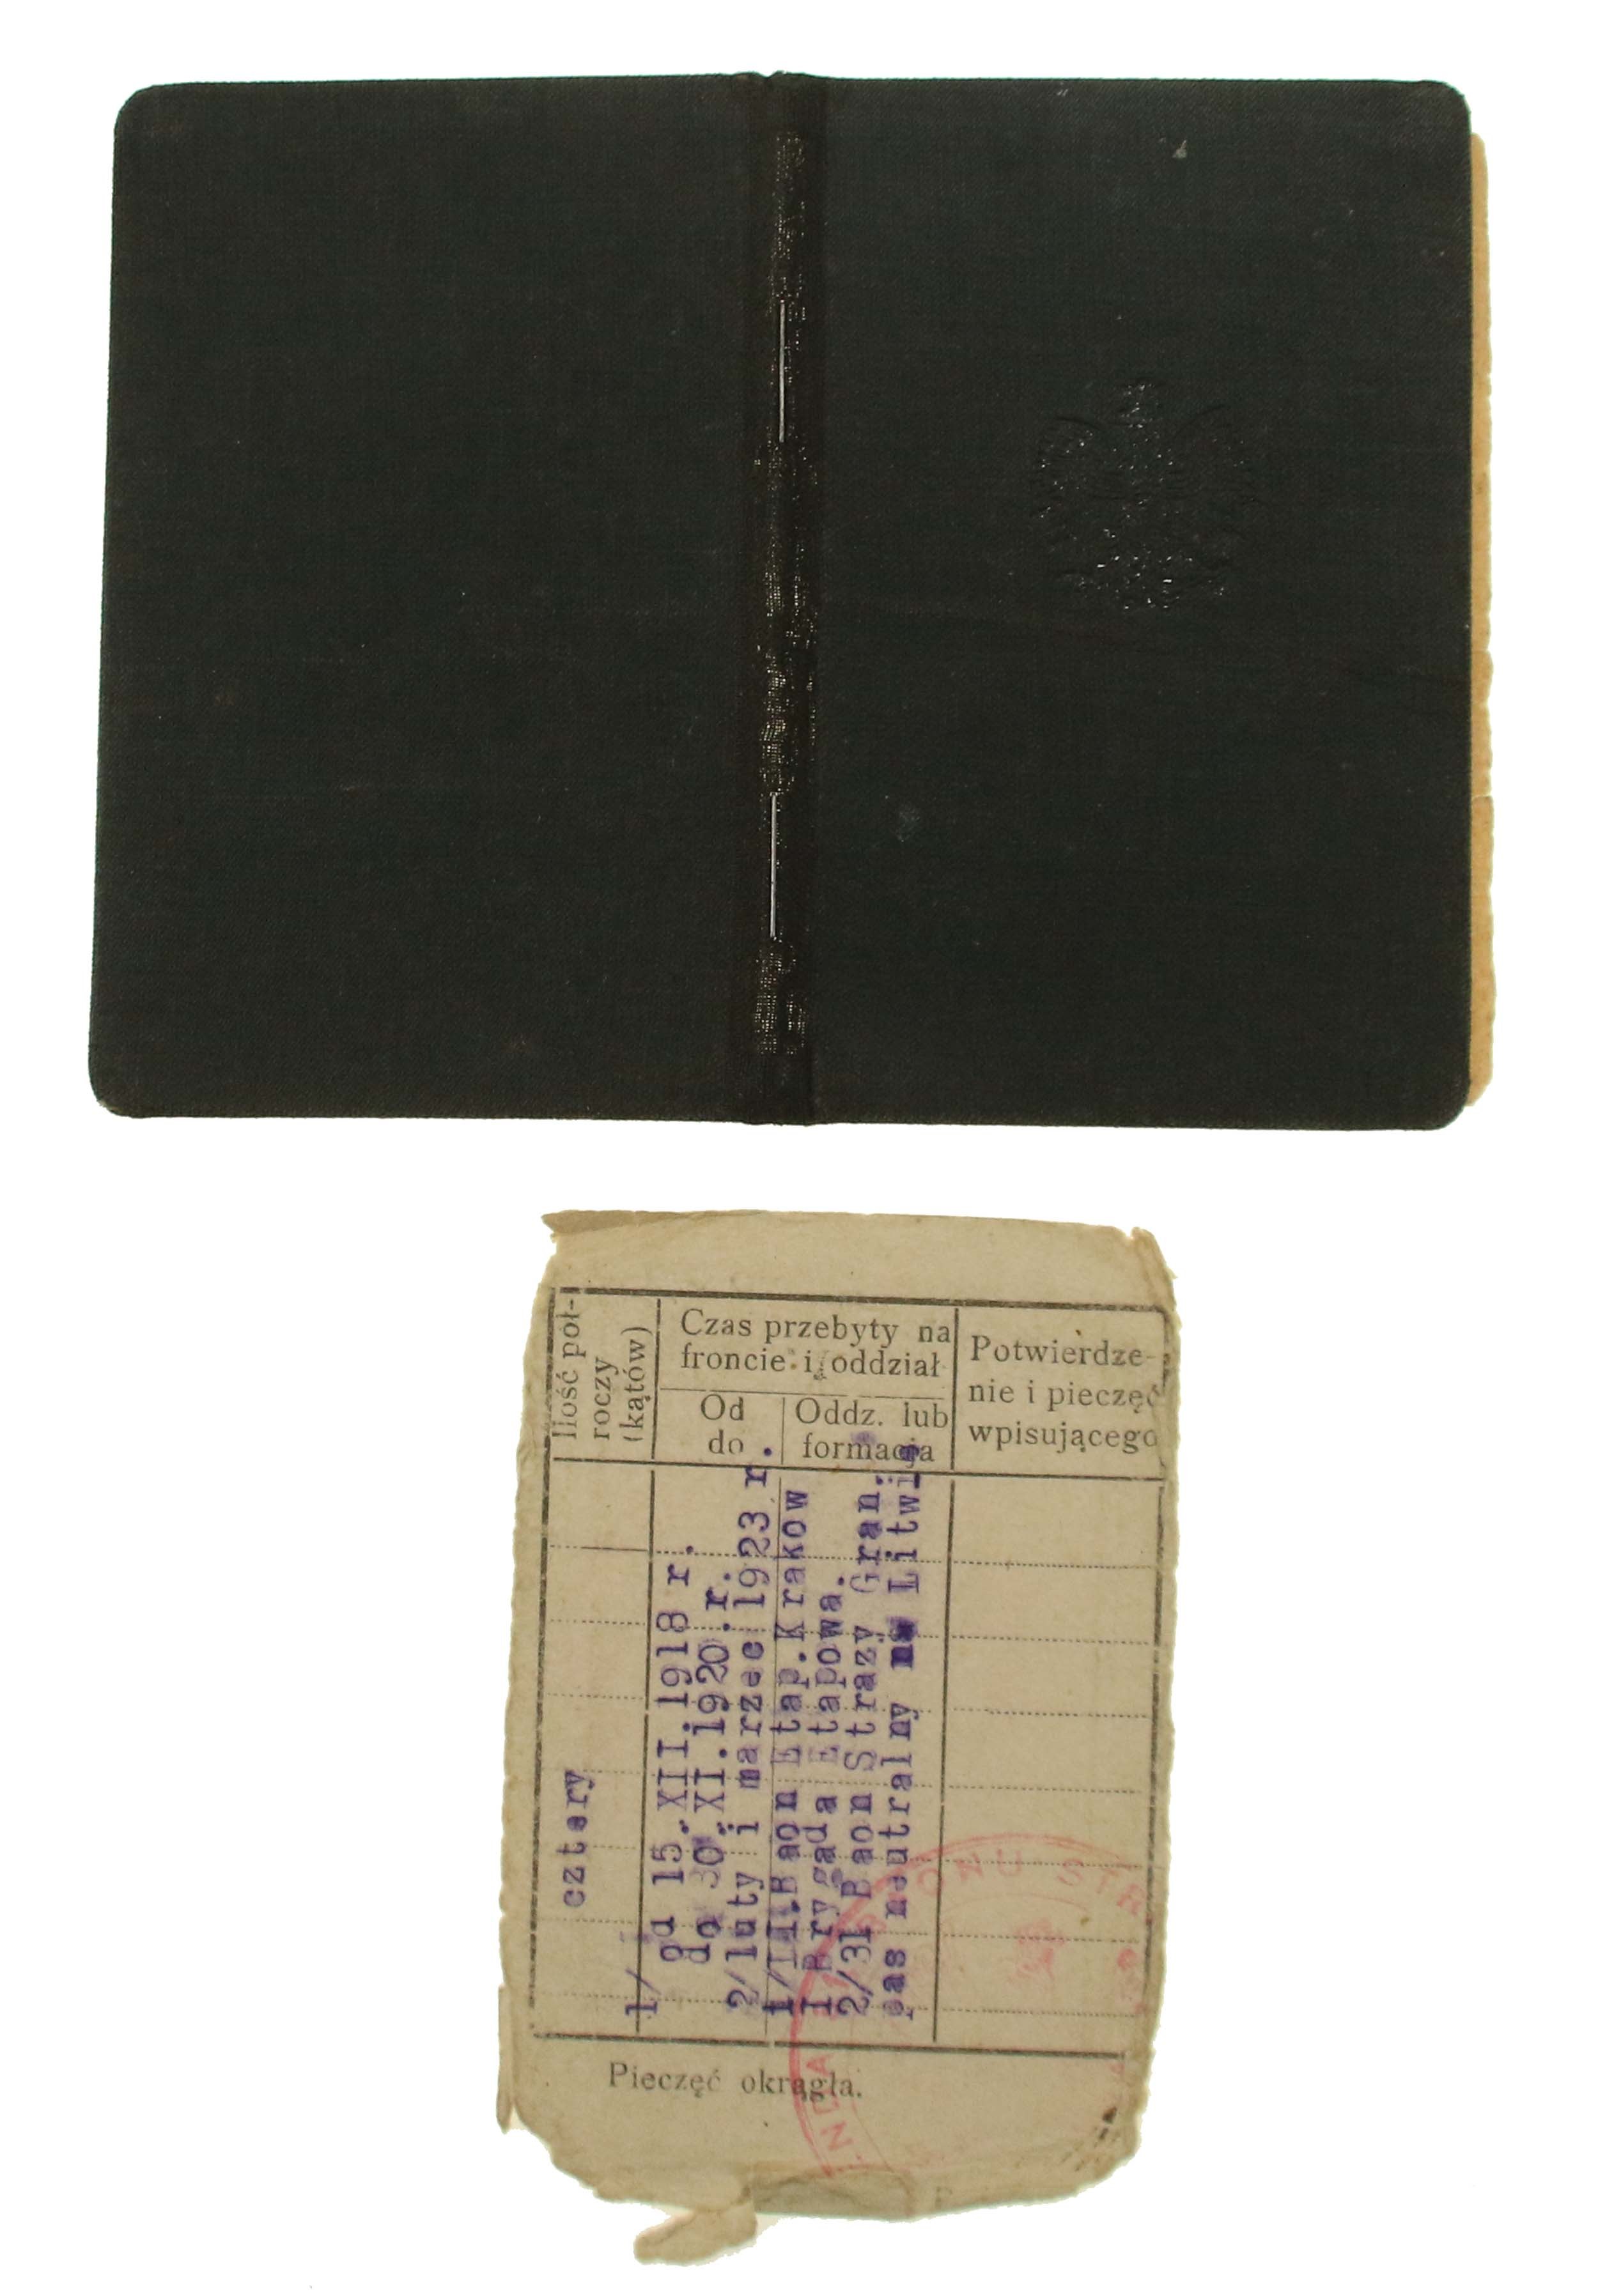 Ilość pół-
roczy
(kątów)
Czas przebyty na
froncie i oddział
Od
do
Oddz. lub
formacja
Potwierdze-
nie i pieczęć
wpisującego
cztery
1/
od 15.XII.1918 r.
do 30.XI.1920 r.
2/luty i marzec 1923 r.
1/III.Baon Etap.Krakow
1 Brygada Etapowa.
2/31 Baon Straży Gran.
pas neutralny na Litwie
ONU STR
Pieczęć okrągła.